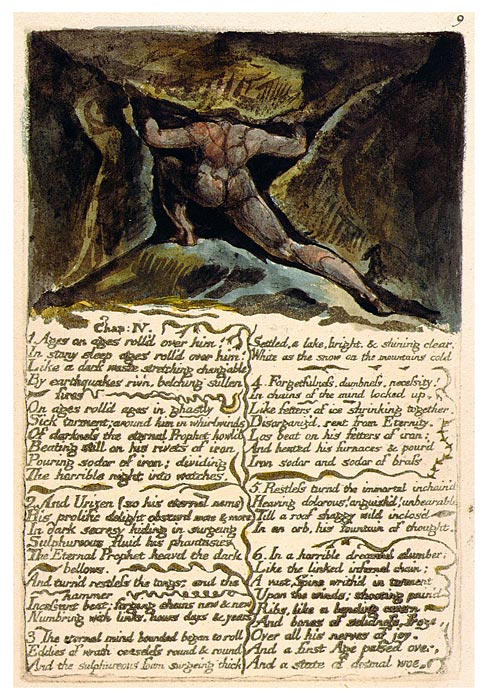 9
Chap: IV.
1. Ages on ages roll'd over him!
In stony sleep ages roll'd over him!
Like a dark waste stretching chang'able
By earthquakes riv'n, belching sullen
fires
On ages roll'd ages in ghastly
Sick torment; around him in whirlwinds
Of darkness the eternal Prophet howl'd
Beating still on his rivets of iron
Pouring sodor of iron; dividing
The horrible night into watches.
2. And Urizen (so his eternal name)
His prolific delight obscurd more & more
In dark secresy hiding in surgeing
Sulphureous fluid his phantasies.
The Eternal Prophet heavd the dark
bellows,
And turn'd restless the tongs; and the
hammer
Incessant beat; forging chains new & new
Numb'ring with links. hours, days & years
3 The eternal mind bounded began to roll
Eddies of wrath ceaseless round & round,
And the sulphureous foam surgeing thick
Settled, a lake, bright, & shining clear.
White as the snow on the mountains cold.
4. Forgetfulness, dumbness, necessity!
In chains of the mind locked up,
Like fetters of ice shrinking together.
Disorganiz'd, rent from Eternity.
Los beat on his fetters of iron;
And heated his furnaces & pour'd
Iron sodor and sodor of brass
5. Restless turnd the immortal inchain'd
Heaving dolorous! anguish'd! unbearable
Till a roof shaggy wild inclos'd
In an orb, his fountain of thought.
6. In a horrible dreamful slumber;
Like the linked infernal chain;
A vast Spine writh'd in torment
Upon the winds; shooting pain'd
Ribs, like a bending cavern
And bones of solidness, froze
Over all his nerves of joy.
And a first Age passed over,
And a state of dismal woe.